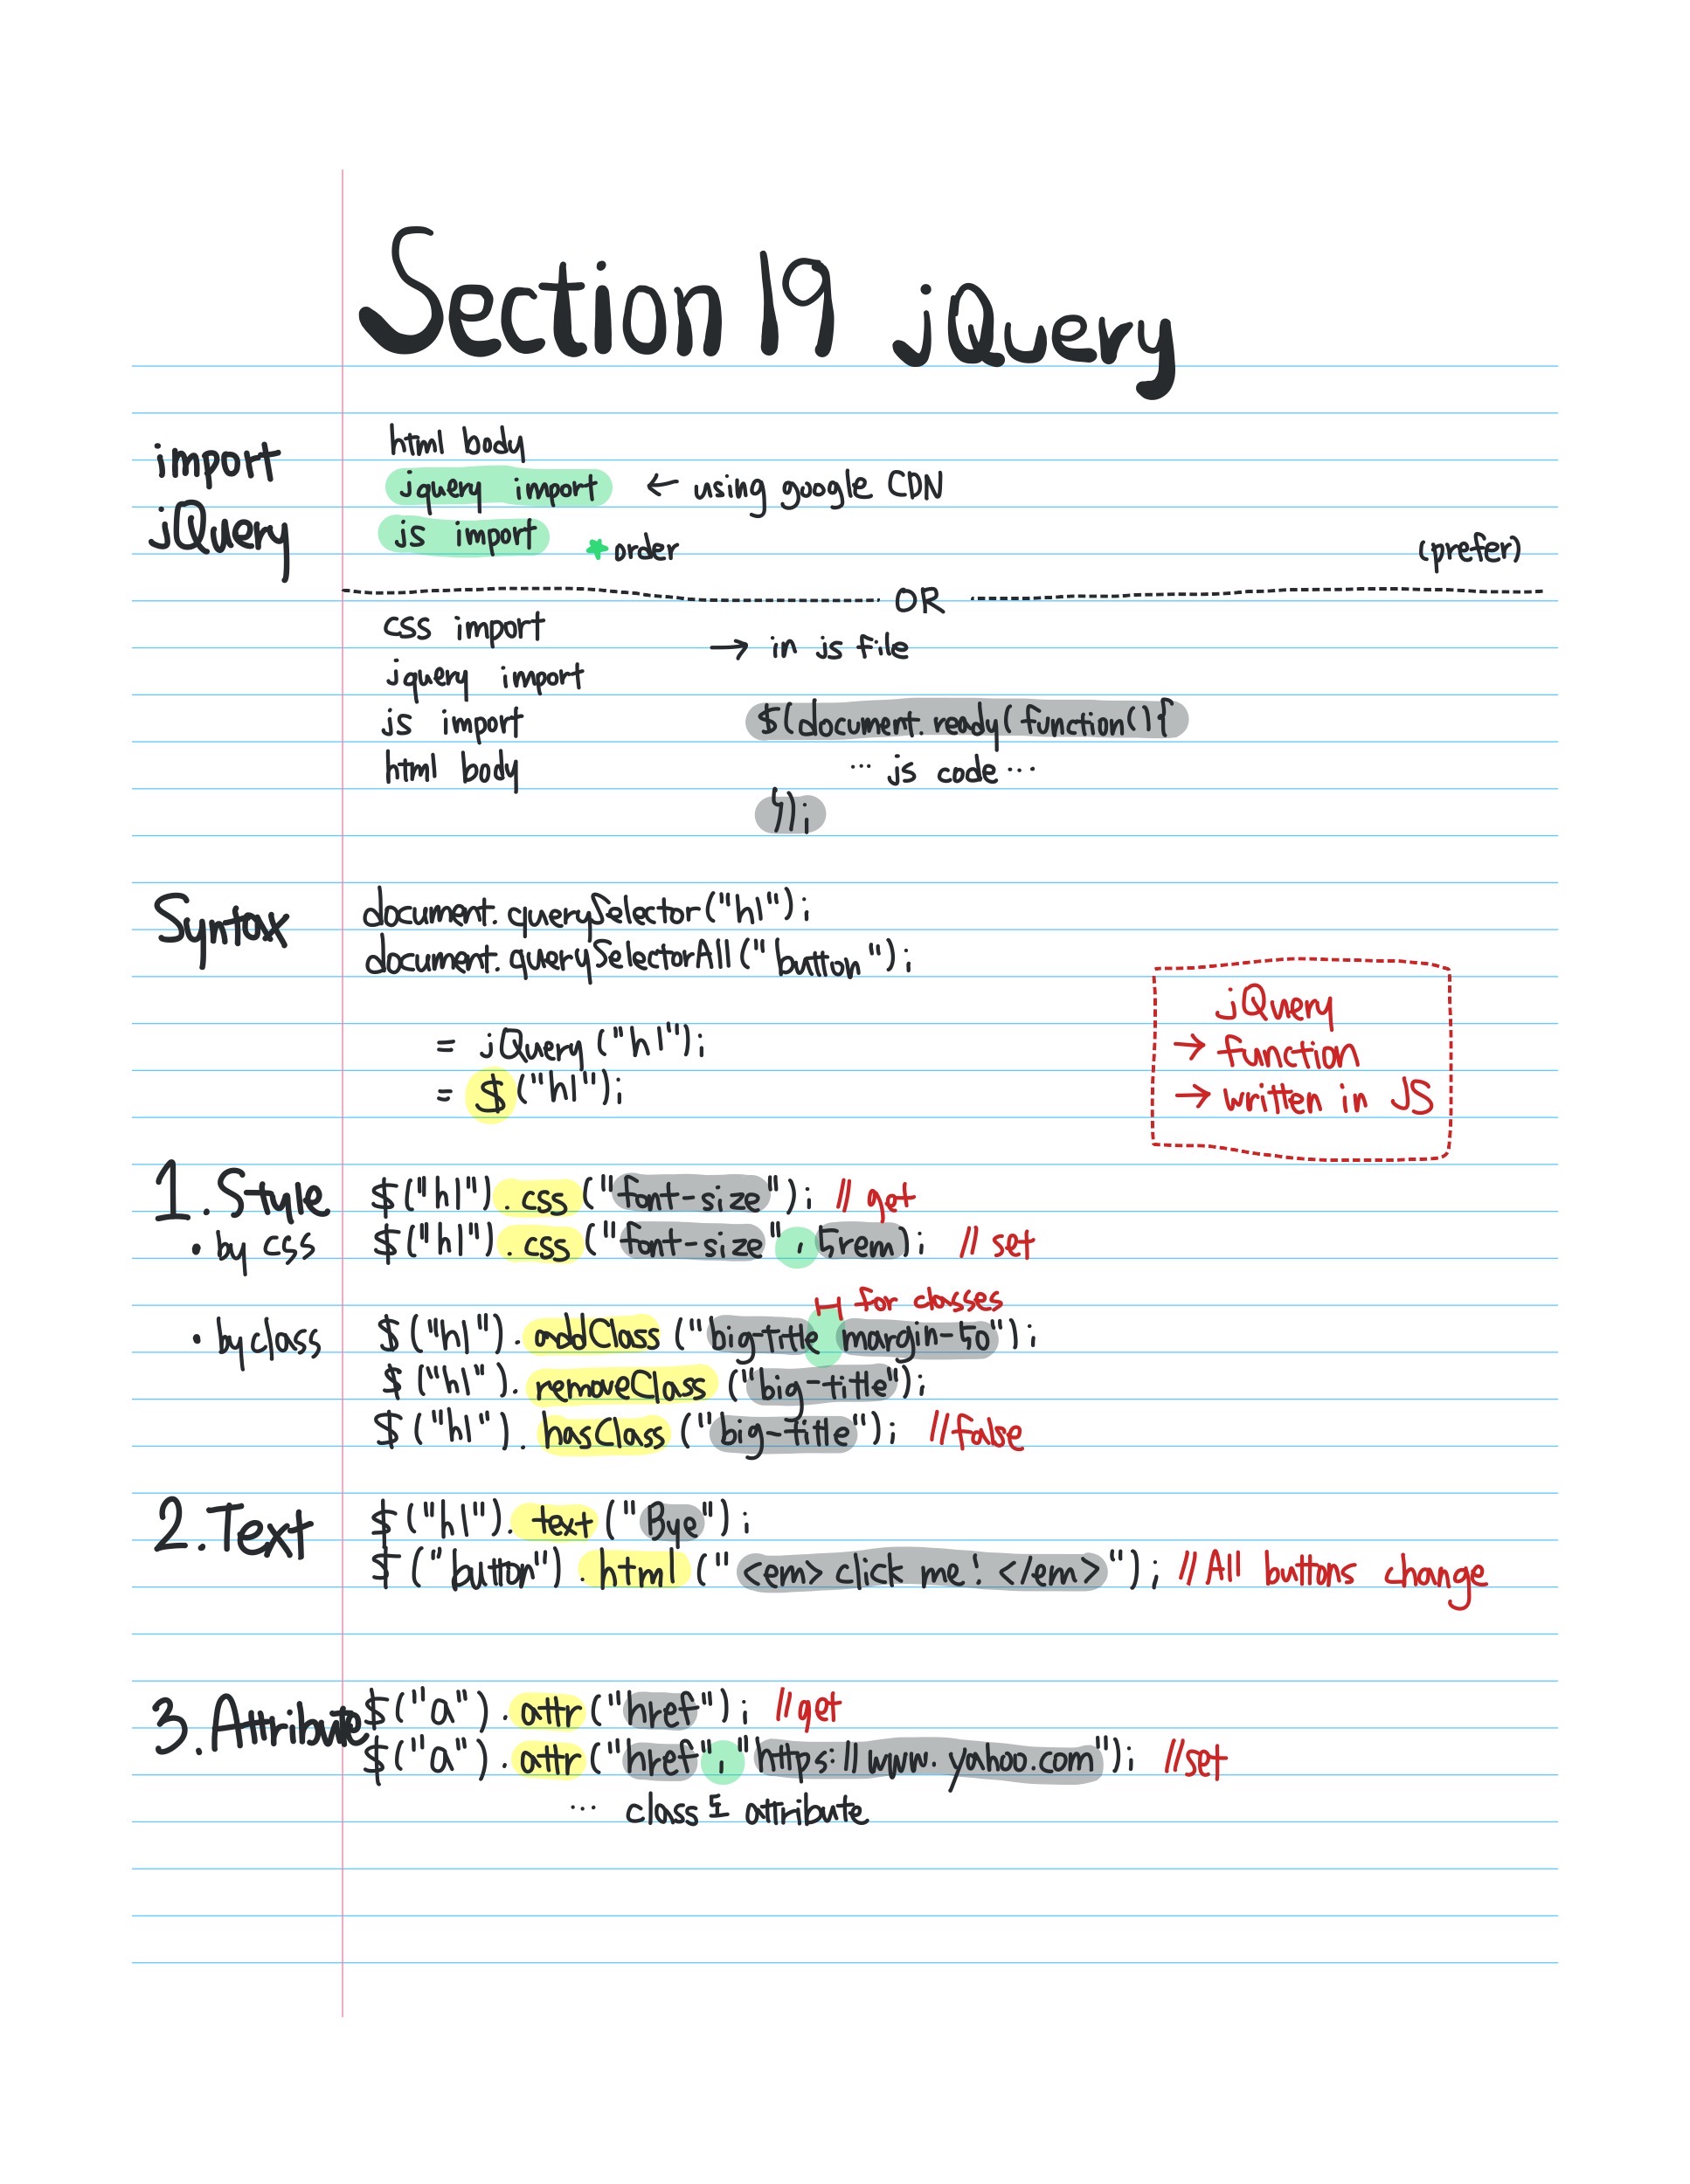 Section 19 jQuery
import jQuery
html body
jquery import ← using google CDN
js import ★ order
(prefer)
OR
css import
jquery import
js import
html body
→ in js file
$(document.ready(function(){
... js code ...
});
Syntax
document.querySelector("h1");
document.querySelectorAll("button");
= jQuery("h1");
= $("h1");
jQuery
→ function
→ written in JS
1. Style
• by css
$("h1").css("font-size"); // get
$("h1").css("font-size", 5rem); // set
• by class
for classes
$("h1").addClass("big-title margin-50");
$("h1").removeClass("big-title");
$("h1").hasClass("big-title"); //false
2. Text
$("h1").text("Bye");
$("button").html("<em> click me! </em>"); //All buttons change
3. Attribute
$("a").attr("href"); //get
$("a").attr("href", "https://www.yahoo.com"); //set
... class도 attribute